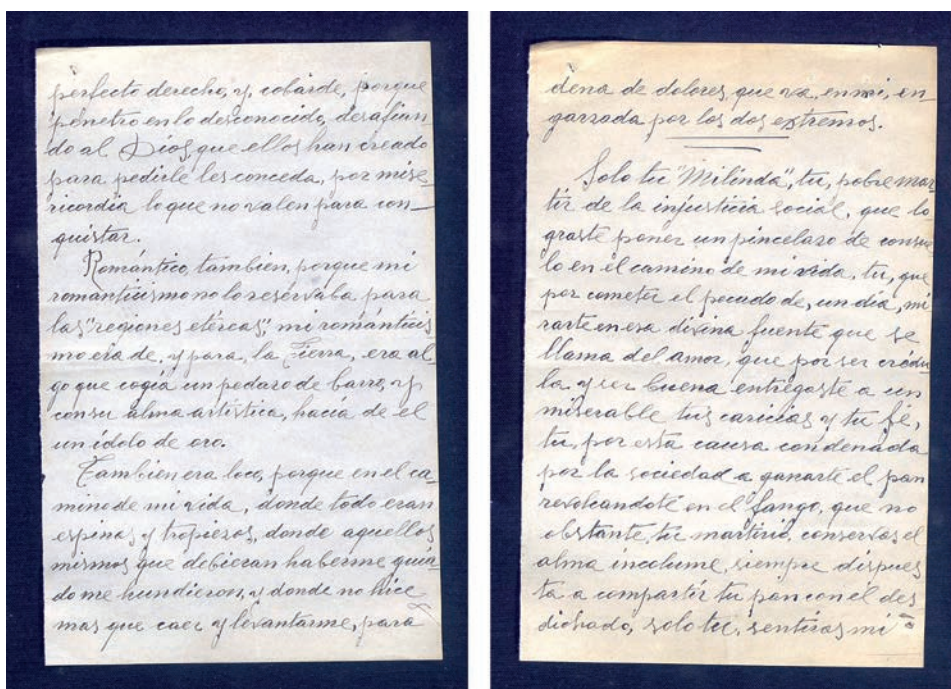 perfecto derecho, y, cobarde, porque
penetro en lo desconocido, desafian
do al Dios, que ellos han creado
para pedirle les conceda, por mise-
ricordia lo que no valen para con-
quistar.
Romántico, tambien, porque mi
romanticismo no lo reservaba para
las "regiones etéreas", mi románticis
mo era de, y para, la Tierra, era al-
go que cogía un pedazo de barro, y,
con su alma artística, hacía de el
un ídolo de oro.
Tambien era loco, porque en el ca-
mino de mi vida, donde todo eran
espinas y tropiezos, donde aquellos
mismos que debieran haberme guia-
do me hundieron, y donde no hice
mas que caer y levantarme, para
dena de dolores, que va, en mi, en-
garzada por los dos extremos.
Solo tu "Milinda", tu, pobre mar-
tir de la injusticia social, que lo-
graste poner un pincelazo de consue
lo en el camino de mi vida, tu, que
por cometer el pecado de, un dia, mi
rarte en esa divina fuente que se
llama del amor, que por ser crédu-
la y ser buena entregaste a un
miserable tus caricias y tu fé,
tu, por esta causa condenada
por la sociedad a ganarte el pan
revolcandote en el fango, que no
obstante, tu martirio, conservas el
alma incolume, siempre dispues
ta a compartir tu pan con el des
dichado, solo tu, sentiras mi